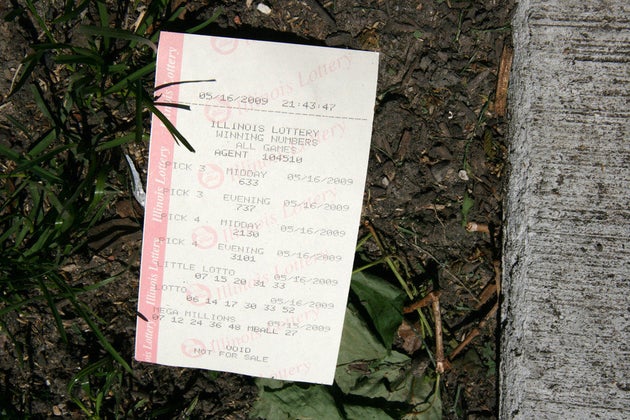 05/16/2009 21:43:47
ILLINOIS LOTTERY
WINNING NUMBERS
ALL GAMES
AGENT 104510
PICK 3 MIDDAY 05/16/2009
633
PICK 3 EVENING 05/16/2009
737
PICK 4 MIDDAY 05/16/2009
2130
PICK 4 EVENING 05/16/2009
3101
LITTLE LOTTO 05/16/2009
07 15 20 31 33
LOTTO 05/16/2009
06 14 17 30 33 52
MEGA MILLIONS 05/15/2009
07 12 24 36 40 MBALL 27
VOID
NOT FOR SALE
Illinois Lottery
Illinois Lottery
Illinois Lottery
Illinois Lottery